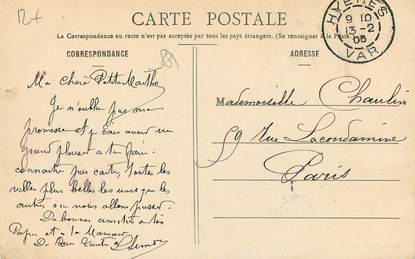 12+
CARTE POSTALE
La Correspondance au recto n'est pas acceptée par tous les pays étrangers. (Se renseigner à la Poste)
CORRESPONDANCE
ADRESSE
HYERES
9 10
13-2
05
VAR
83
Ma chère Petite Marthe
Je n'oublie pas ma
promesse et j'vais avoir un
grand plaisir a te faire
connaitre par cartes, toutes les
villes plus belles les unes que les
autres ou nous allons passer.
De bonnes amitiés a ton
Papa et a ta Maman
De Tante
Mademoiselle Chaulin
59 Rue Lacondamine
Paris